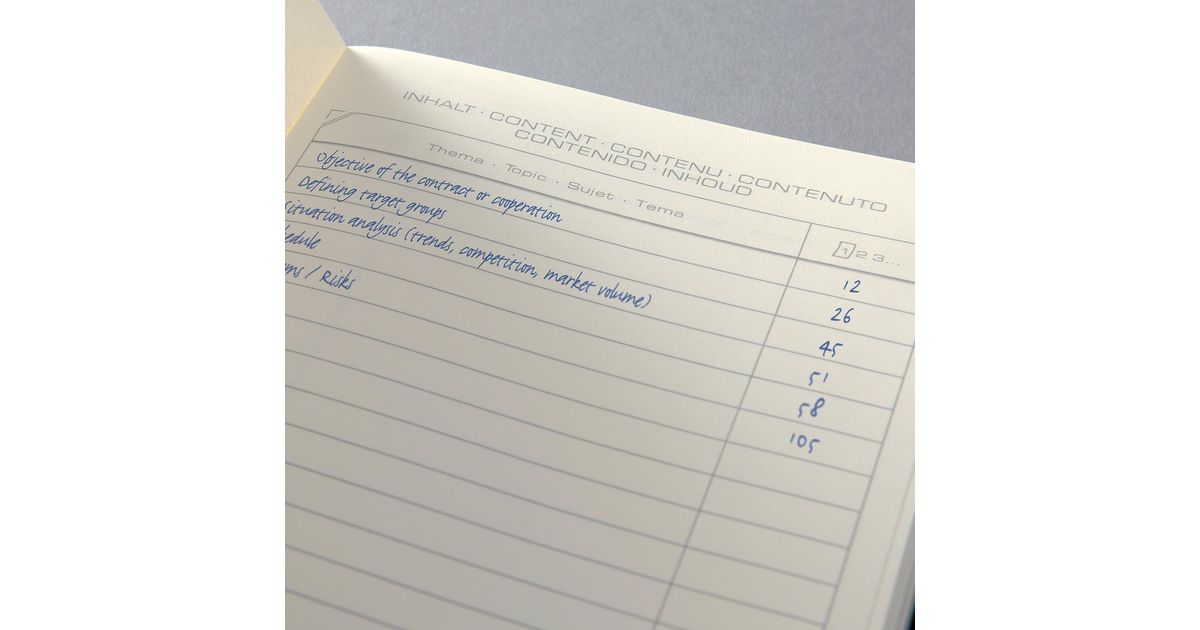 INHALT · CONTENT · CONTENU · CONTENUTO
CONTENIDO · INHOUD
Thema · Topic · Sujet · Tema 1 2 3...
Objective of the contract or cooperation 12
Defining target groups 26
Situation analysis (trends, competition, market volume) 45
hedule 51
ms / Risks 58
105